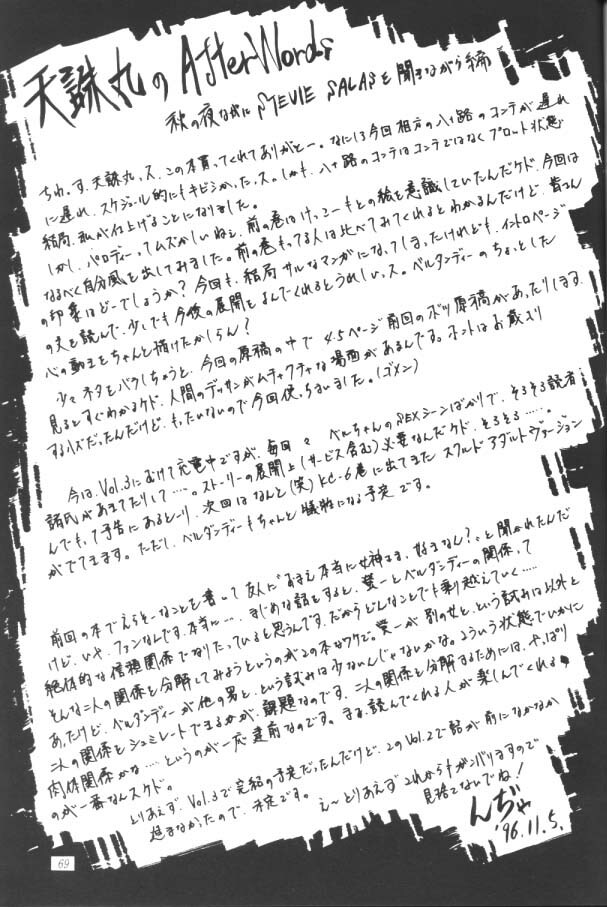 天誅丸の After Words
秋の夜ながに STEVIE SALASを聞きながら編
ちわっす、天誅丸っス、この本買ってくれてありがとー。なにしろ今回相方の八十路のコンテが遅れ
に遅れ、スケジュール的にもキビシかったっス。しかも、八十路のコンテはコンテではなくプロット状態
結局、私が仕上げることになりました。
しかし、パロディーってムズかしいねぇ、前の巻はけっこーもとの絵を意識していたんだケド、今回は
なるべく自分風を出してみました。前の巻もってる人は比べてみてくれるとわかるんだけど、皆さん
の印象はどーでしょうか?今回も、結局サルなマンガになってしまったけれども、イントロページ
の文を読んで、少しでも今後の展開をよんでくれるとうれしいっス。ベルダンディーのちょっとした
心の動きをちゃんと描けたかしらん?
少々ネタをバラしちゃうと、今回の原稿の中で 4.5ページ前回のボツ原稿があったりします。
見るとすぐわかるケド、人間のデッサンがムチャクチャな場面があるんです。ホントはお蔵入り
するハズだったんだけど、もったいないので今回使っちまいました。(ゴメン)
今は、Vol.3にむけて充電中ですが、毎回々 ベルちゃんのSEXシーンばかりで、そろそろ読者
諸氏があきてたりして…。ストーリーの展開上(サービス含む)必要なんだケド、そろそろ……。
んでもって予告にあるとーり、次回はなんと(笑)KC-6巻に出てきた スクルドアダルトヴァージョン
がでてきます。ただし、ベルダンディーもちゃんと犠牲になる予定です。
前回の本でえらそーなことを書いて友人に“おまえ本当に女神さま、好きなん?”と聞かれたんだ
けど、いや、ファンなんです、本当に…、まじめな話をすると、螢一とベルダンディーの関係って
絶体的な信頼関係でなりたっていると思うんです、だからどんなことでも乗り越えていく……
そんな二人の関係を分解してみようというのがこの本なワケで。螢一が別の女と、という試みは以外と
あったけど、ベルダンディーが他の男と、という試みは少ないんじゃないかな。こういう状態でいかに
二人の関係をシュミレートできるかが、課題なのです。二人の関係を分解するためには、やっぱり
肉体関係かな…、というのが一応、建前なのです。まぁ、読んでくれる人が楽しんでくれる
のが一番なんスケド。
とりあえず、Vol.3で完結の予定だったんだけど、このVol.2で話が前になかなか
進まなかったので、未定です。
え~とりあえずこれからもガンバリますので
見捨てないでね!
んぢゃ
'96.11.5.
69